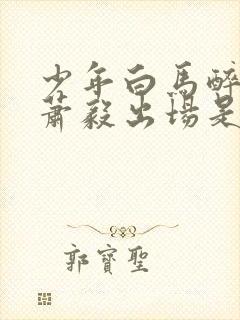 少年白馬醉
蕭毅出場是
郭寶聖